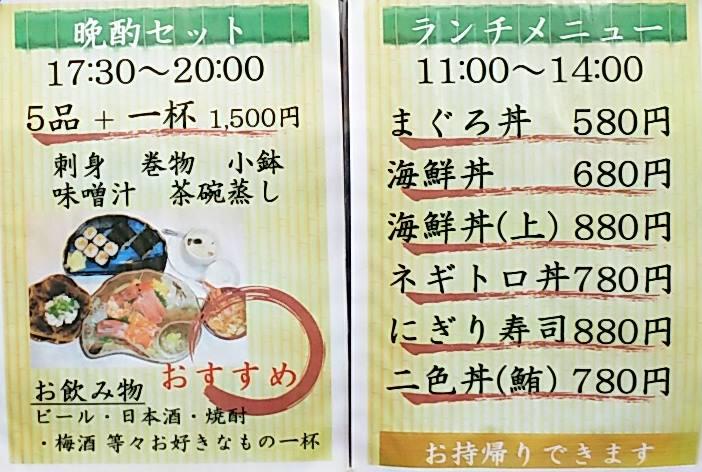 晩酌セット
17:30～20:00
5品 + 一杯 1,500円
刺身 巻物 小鉢
味噌汁 茶碗蒸し
おすすめ
お飲み物
ビール・日本酒・焼酎
・梅酒 等々お好きなもの一杯
ランチメニュー
11:00～14:00
まぐろ丼 580円
海鮮丼 680円
海鮮丼(上) 880円
ネギトロ丼 780円
にぎり寿司 880円
二色丼(鮪) 780円
お持帰りできます